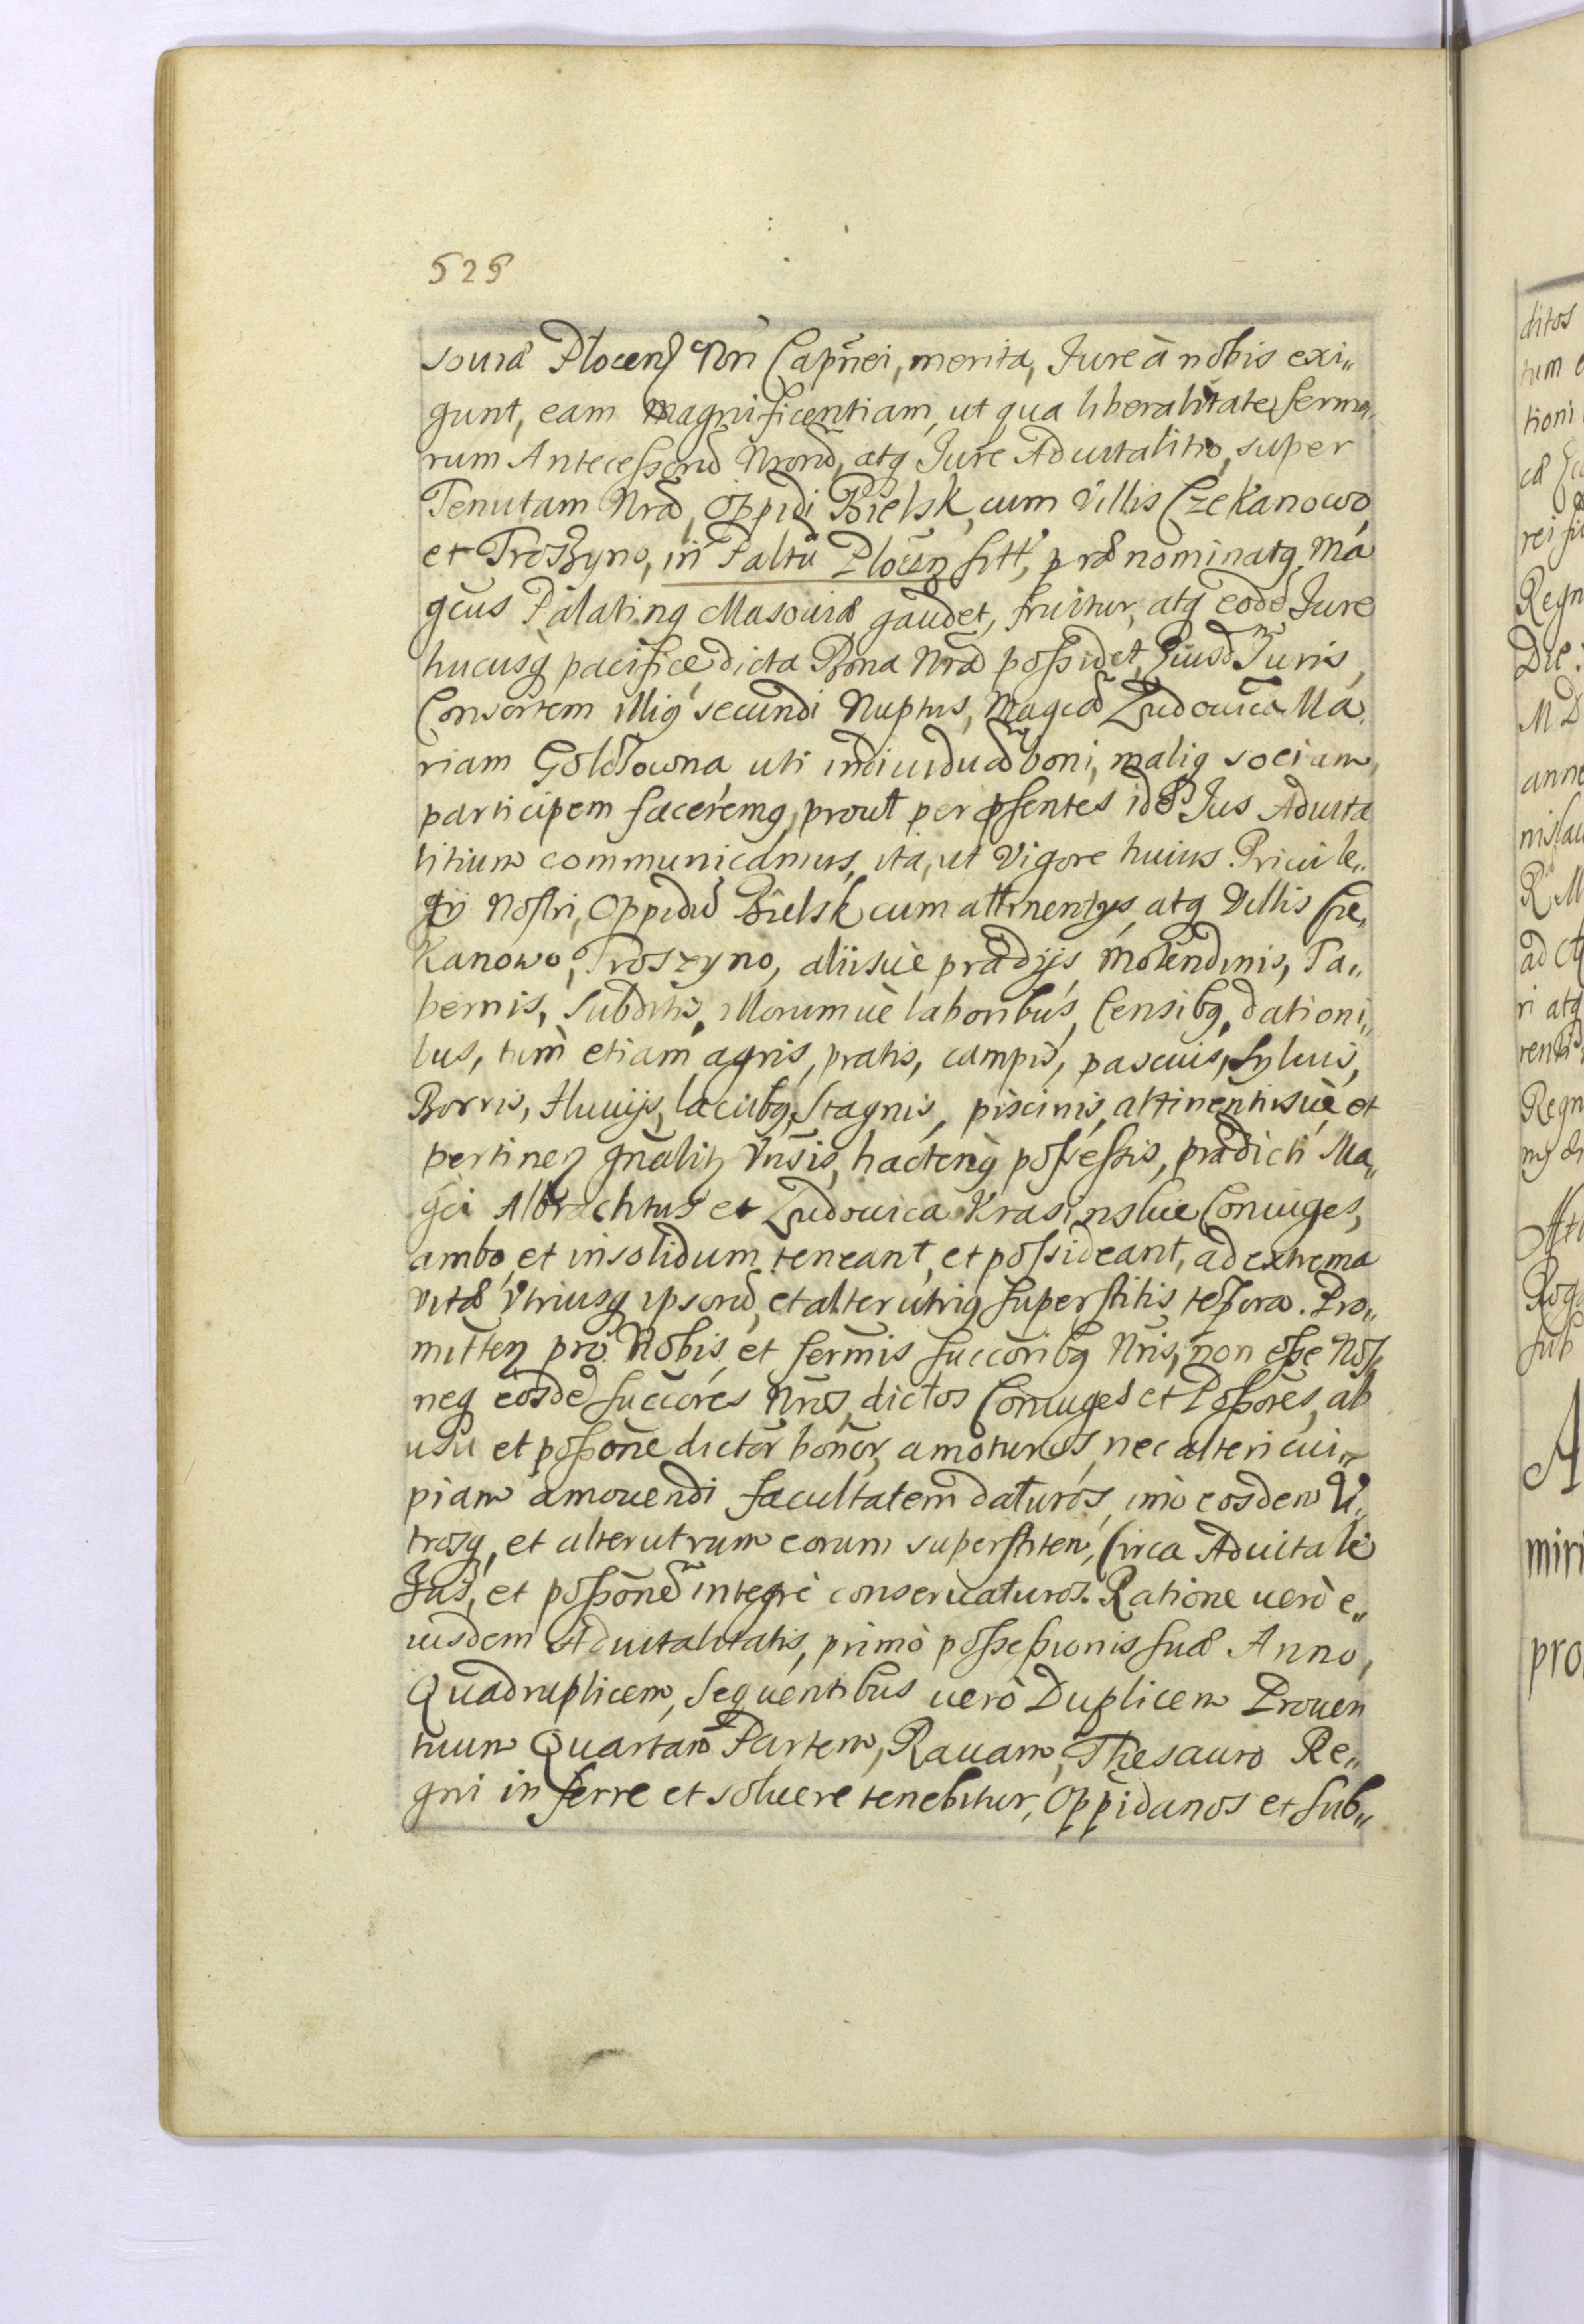 525
souiæ Plocen Nri Capnei, merita, Jure à nobis exi„
gunt, eam magnificentiam, ut qua liberalitate sermo„
rum Antecessorũ Nrorũ, atq Jure Aduitalitio, super
Tenutam Nrã, Oppidi Bielsk, cum Villis Czekanowo,
et Troszyno, in Paltũ Plocen sitt, prænominatq Ma
gcus Palatinq Masouiæ gaudet, fruitur, atq eodẽ Jure
hucusq pacificè dicta Bona Nrã possidet, Eiusdm Juris,
Consortem illiq secundi Nuptus, Magcã Ludouicã Ma„
riam Goldtowna uti indiuiduãmq boni, maliq sociam,
participem facerémq, prout per pſentes idẽ Jus Aduita
litium communicamus, ita, ut Vigore huius Priuile„
gij Nostri, Oppidũ Bielsk cum attinentijs, atq Villis Cze„
Kanowo, Troszyno, alijsuè prædijs, molendinis, Ta„
bernis, Subditis, illorumuè laboribus, Censibq, dationi„
bus, tum etiam agris, pratis, campis, pascuis, Syluis,
Borris, Fluuijs, lacubq, Stagnis, piscinis, attinentisuè et
pertinen gnãlit Vnsis, hactenq possessis, prædicti Ma„
gci Albrachtus et Ludouica Krasinskie Coniuges,
ambo, et insolidum teneant, et possideant, ad extrema
vitæ Vtriusq ipsorũ, et alterutriq Superstitis tepora. Pro„
mitten pro Nobis, et sermis Succoribq Nris, non esse Nos,
neq eosdẽ Succores Nros, dictos Coniuges et Possores, ab
usu et possone dictor bonor, amoturos, nec alteri cui„
piam amouendi facultatem daturos, imò eosdem V„
trosq, et alterutrum eorum superstitem, Circa Aduitale
Jus, et possonem integrè conseruaturos. Ratione uerò e„
iusdem Aduitalitatis, primò possessionis suæ Anno,
Quadruplicem, sequentibus uerò Duplicem Prouen
tuum Quartam Partem, Rauam, Thesauro Re„
gni inferre et soluere tenebitur, Oppidanos et Sub„
ditos
Regn
Die:
anne
ad
ri atq
Regn
sub
A
miri
pro